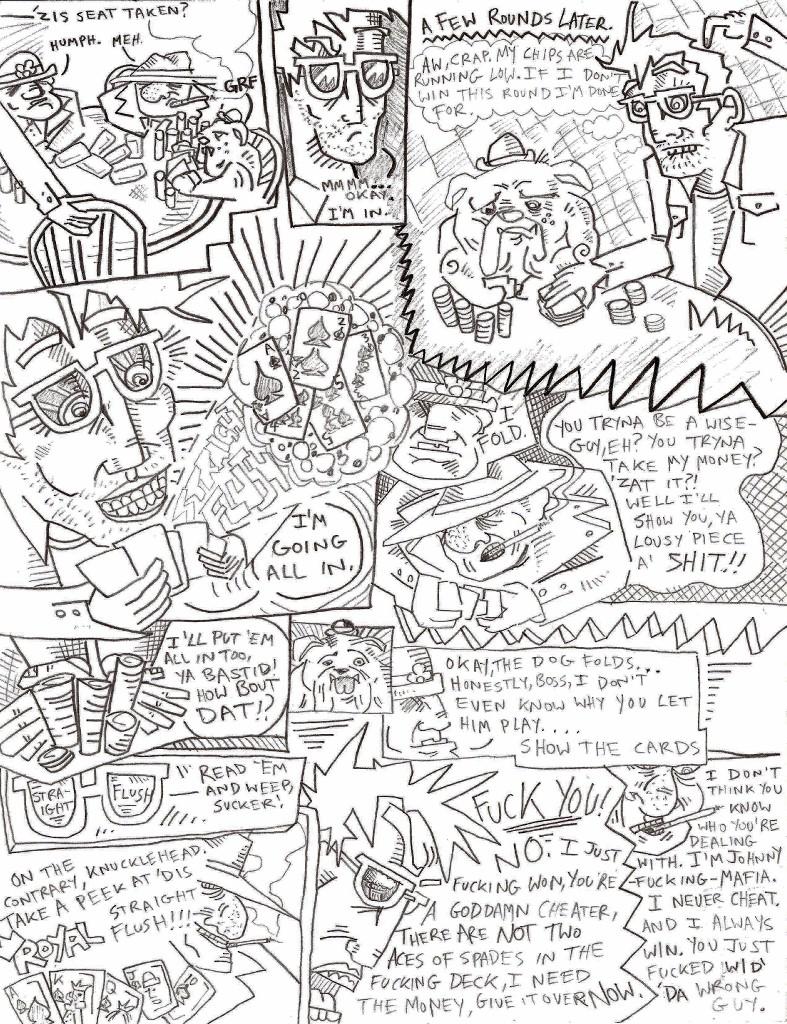 'ZIS SEAT TAKEN?
HUMPH.
MEH.
GRF
MMMM...
OKAY.
I'M IN.
A FEW ROUNDS LATER.
AW, CRAP. MY CHIPS ARE
RUNNING LOW. IF I DON'T
WIN THIS ROUND I'M DONE
FOR.
A
2
3
4
5
STRAIGHT
FLUSH
I'M
GOING
ALL IN.
I
FOLD.
YOU TRYNA BE A WISE-
GUY, EH? YOU TRYNA
TAKE MY MONEY?
'ZAT IT?!
WELL I'LL
SHOW YOU, YA
LOUSY PIECE
A' SHIT!!
I'LL PUT 'EM
ALL IN TOO,
YA BASTID!
HOW BOUT
DAT!?
OKAY, THE DOG FOLDS...
HONESTLY, BOSS, I DON'T
EVEN KNOW WHY YOU LET
HIM PLAY....
SHOW THE CARDS
STRA-
IGHT
FLUSH
READ 'EM
AND WEEP,
SUCKER!
ON THE
CONTRARY, KNUCKLEHEAD.
TAKE A PEEK AT 'DIS
STRAIGHT
FLUSH!!!
ROYAL
A
K
Q
J
FUCK YOU!
NO. I JUST
FUCKING WON, YOU'RE
A GODDAMN CHEATER,
THERE ARE NOT TWO
ACES OF SPADES IN THE
FUCKING DECK, I NEED
THE MONEY, GIVE IT OVER NOW.
I DON'T
THINK YOU
KNOW
WHO YOU'RE
DEALING
WITH. I'M JOHNNY
-FUCKING-MAFIA.
I NEVER CHEAT.
AND I ALWAYS
WIN. YOU JUST
FUCKED WID'
'DA WRONG
GUY.